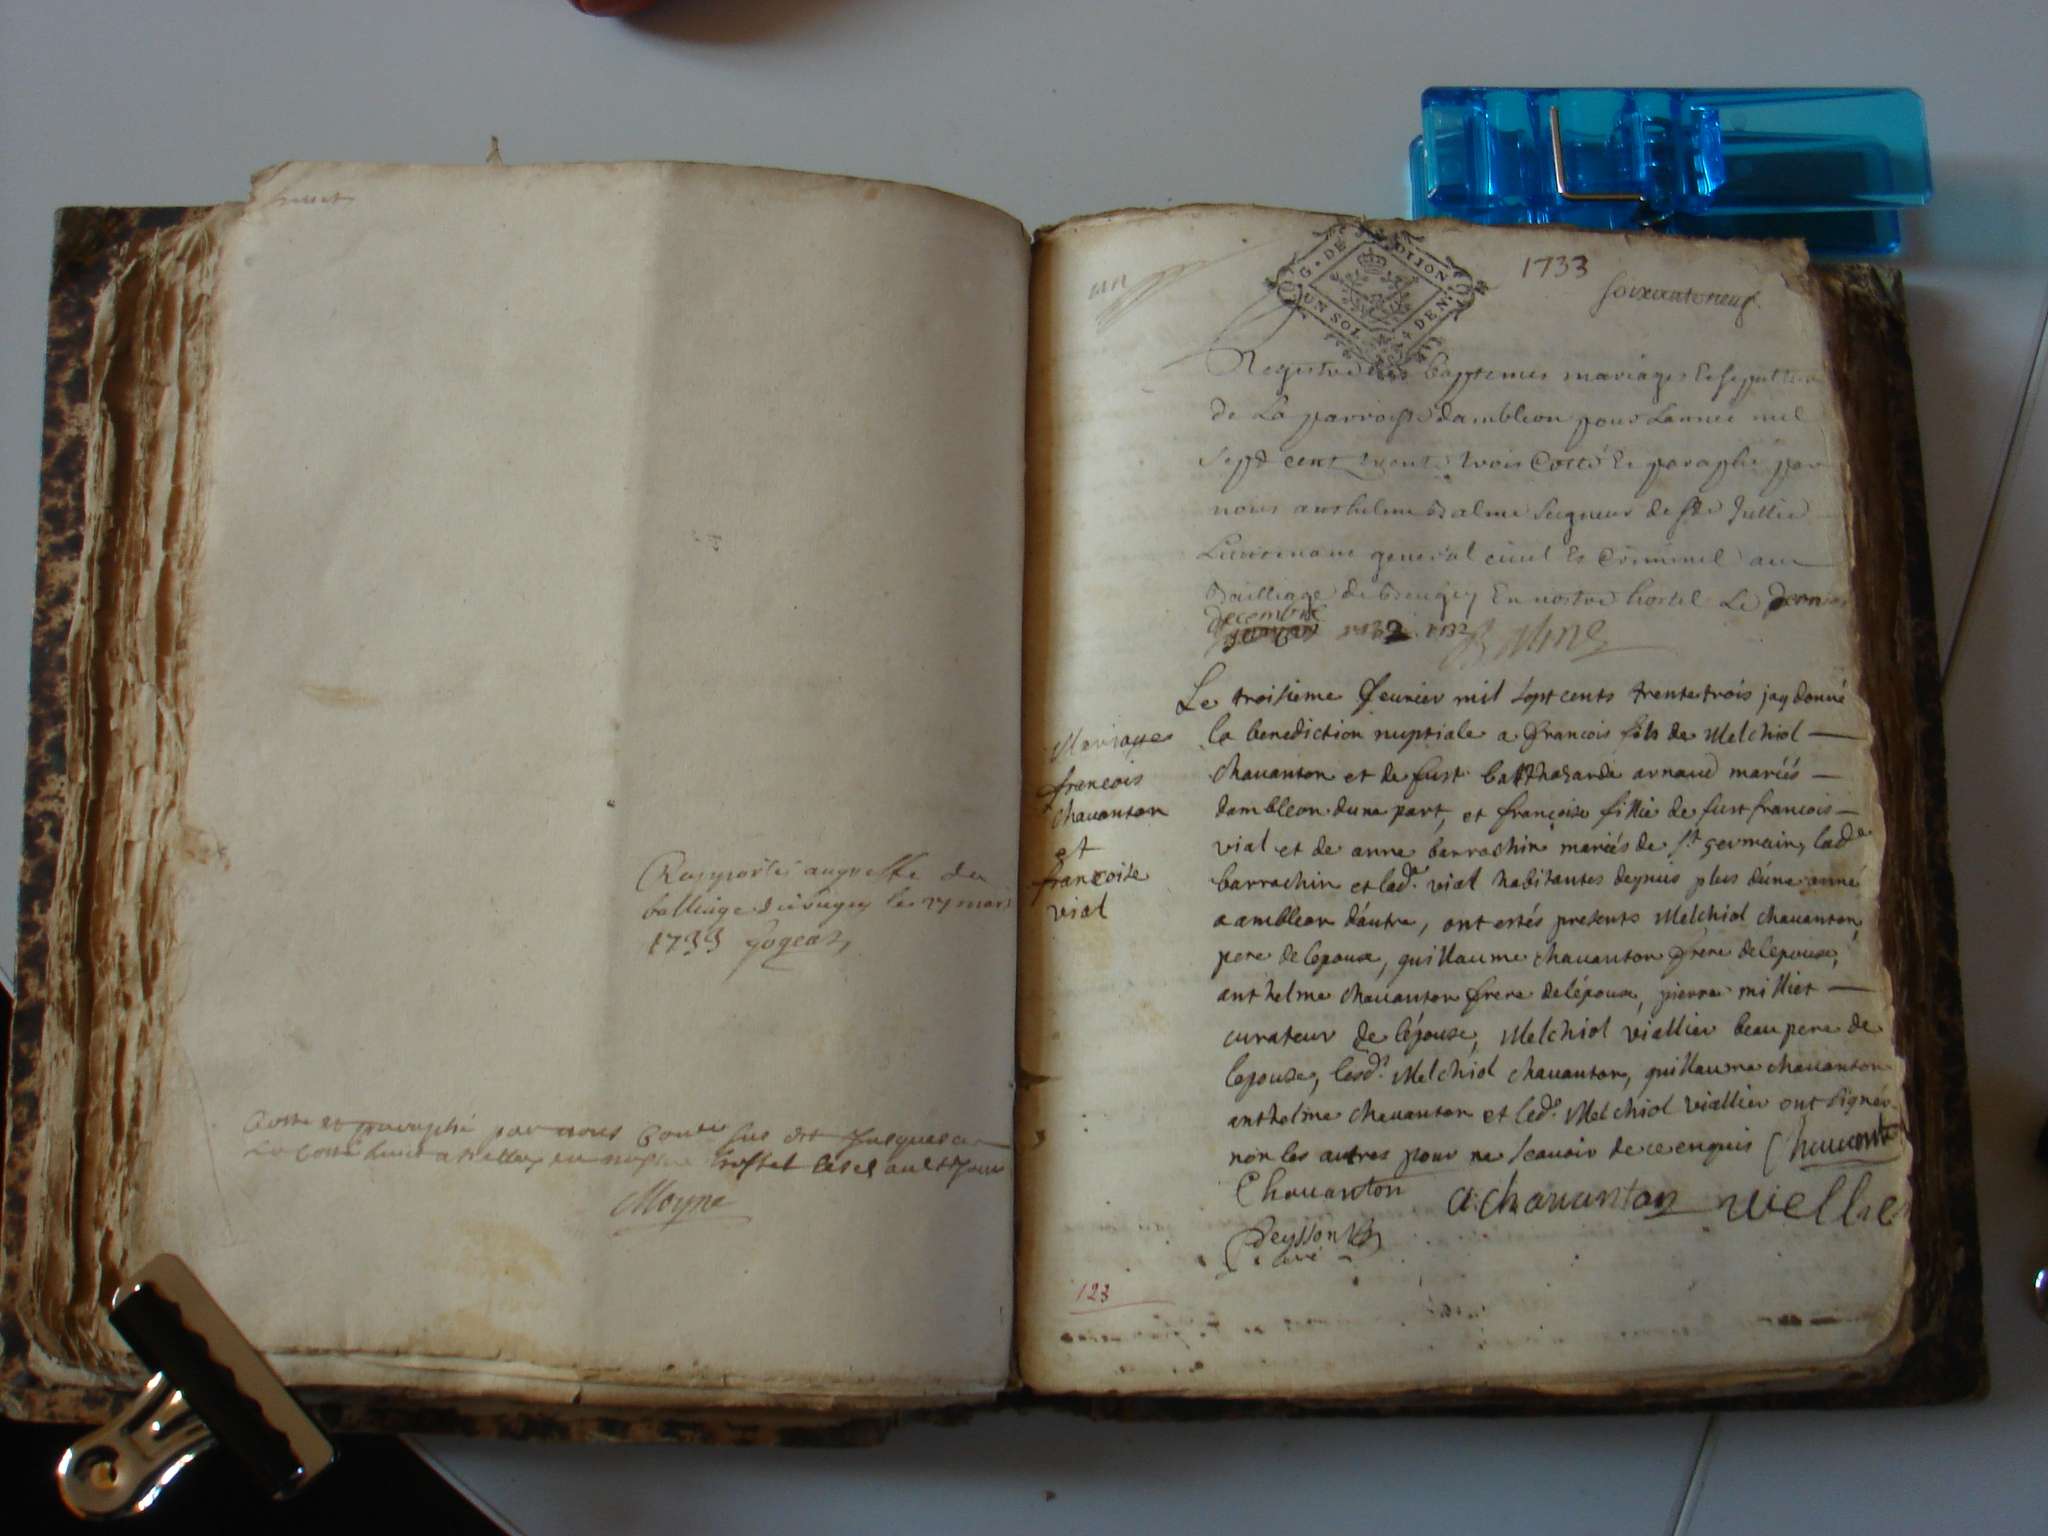 Rapporté au greffe du
balliage de beugey le 27 mars
1733
Cotte et paraphé par nous sus dit jusques a
hostel
Moyne
un
G. DE DIJON
UN SOL 4 DEN.
1733
soixante neuf.
Registre des baptemes mariages et sepultures
de la parroisse dambleon pour Lannée mil
sept cent trente trois Cotté et paraphé par
nous anthelme Balme Seigneur de Ste Jullie
Lieutenant general civil et Criminel au
Bailliage de Beugey En nostre hostel Le dernier
decembre
1732 Balme
Mariage
francois
chauanton
et
francoise
vial
Le troisieme feurier mil sept cents trente trois jay donné
la benediction nuptiale a francois fils de Melchiol
chauanton et de fust balthasarde arnaud mariés
dambleon dune part, et françoise fillie de fust francois
vial et de anne barrachin mariés de st germain, lade
barrachin et lade. vial habitantes depuis plus dúne anné
a ambleon dáutre, ont estés presents Melchiol chauanton,
pere de lepoux, guillaume chauanton frere de lepoux,
anthelme chauanton frere de lépoux, pierre milliet
curateur de lépouse, Melchiol viallier beau pere de
lepouse, lesds. Melchiol chauanton, guillaume chauanton
anthelme chauanton et leds. Melchiol viallier ont signés
non les autres pour ne scauoir de ce enquis Chauanton
Chauanton a: chauanton viellie
Deysson
curé
123